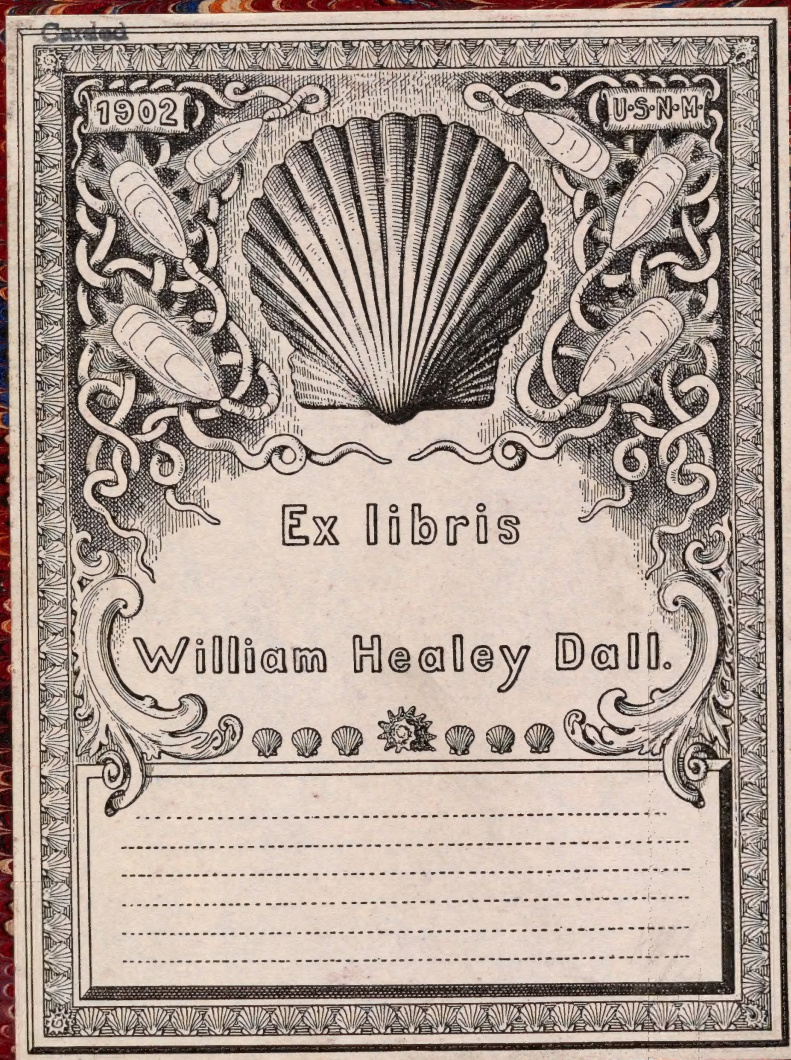 Carded
1902
U·S·N·M·
Ex libris
William Healey Dall.